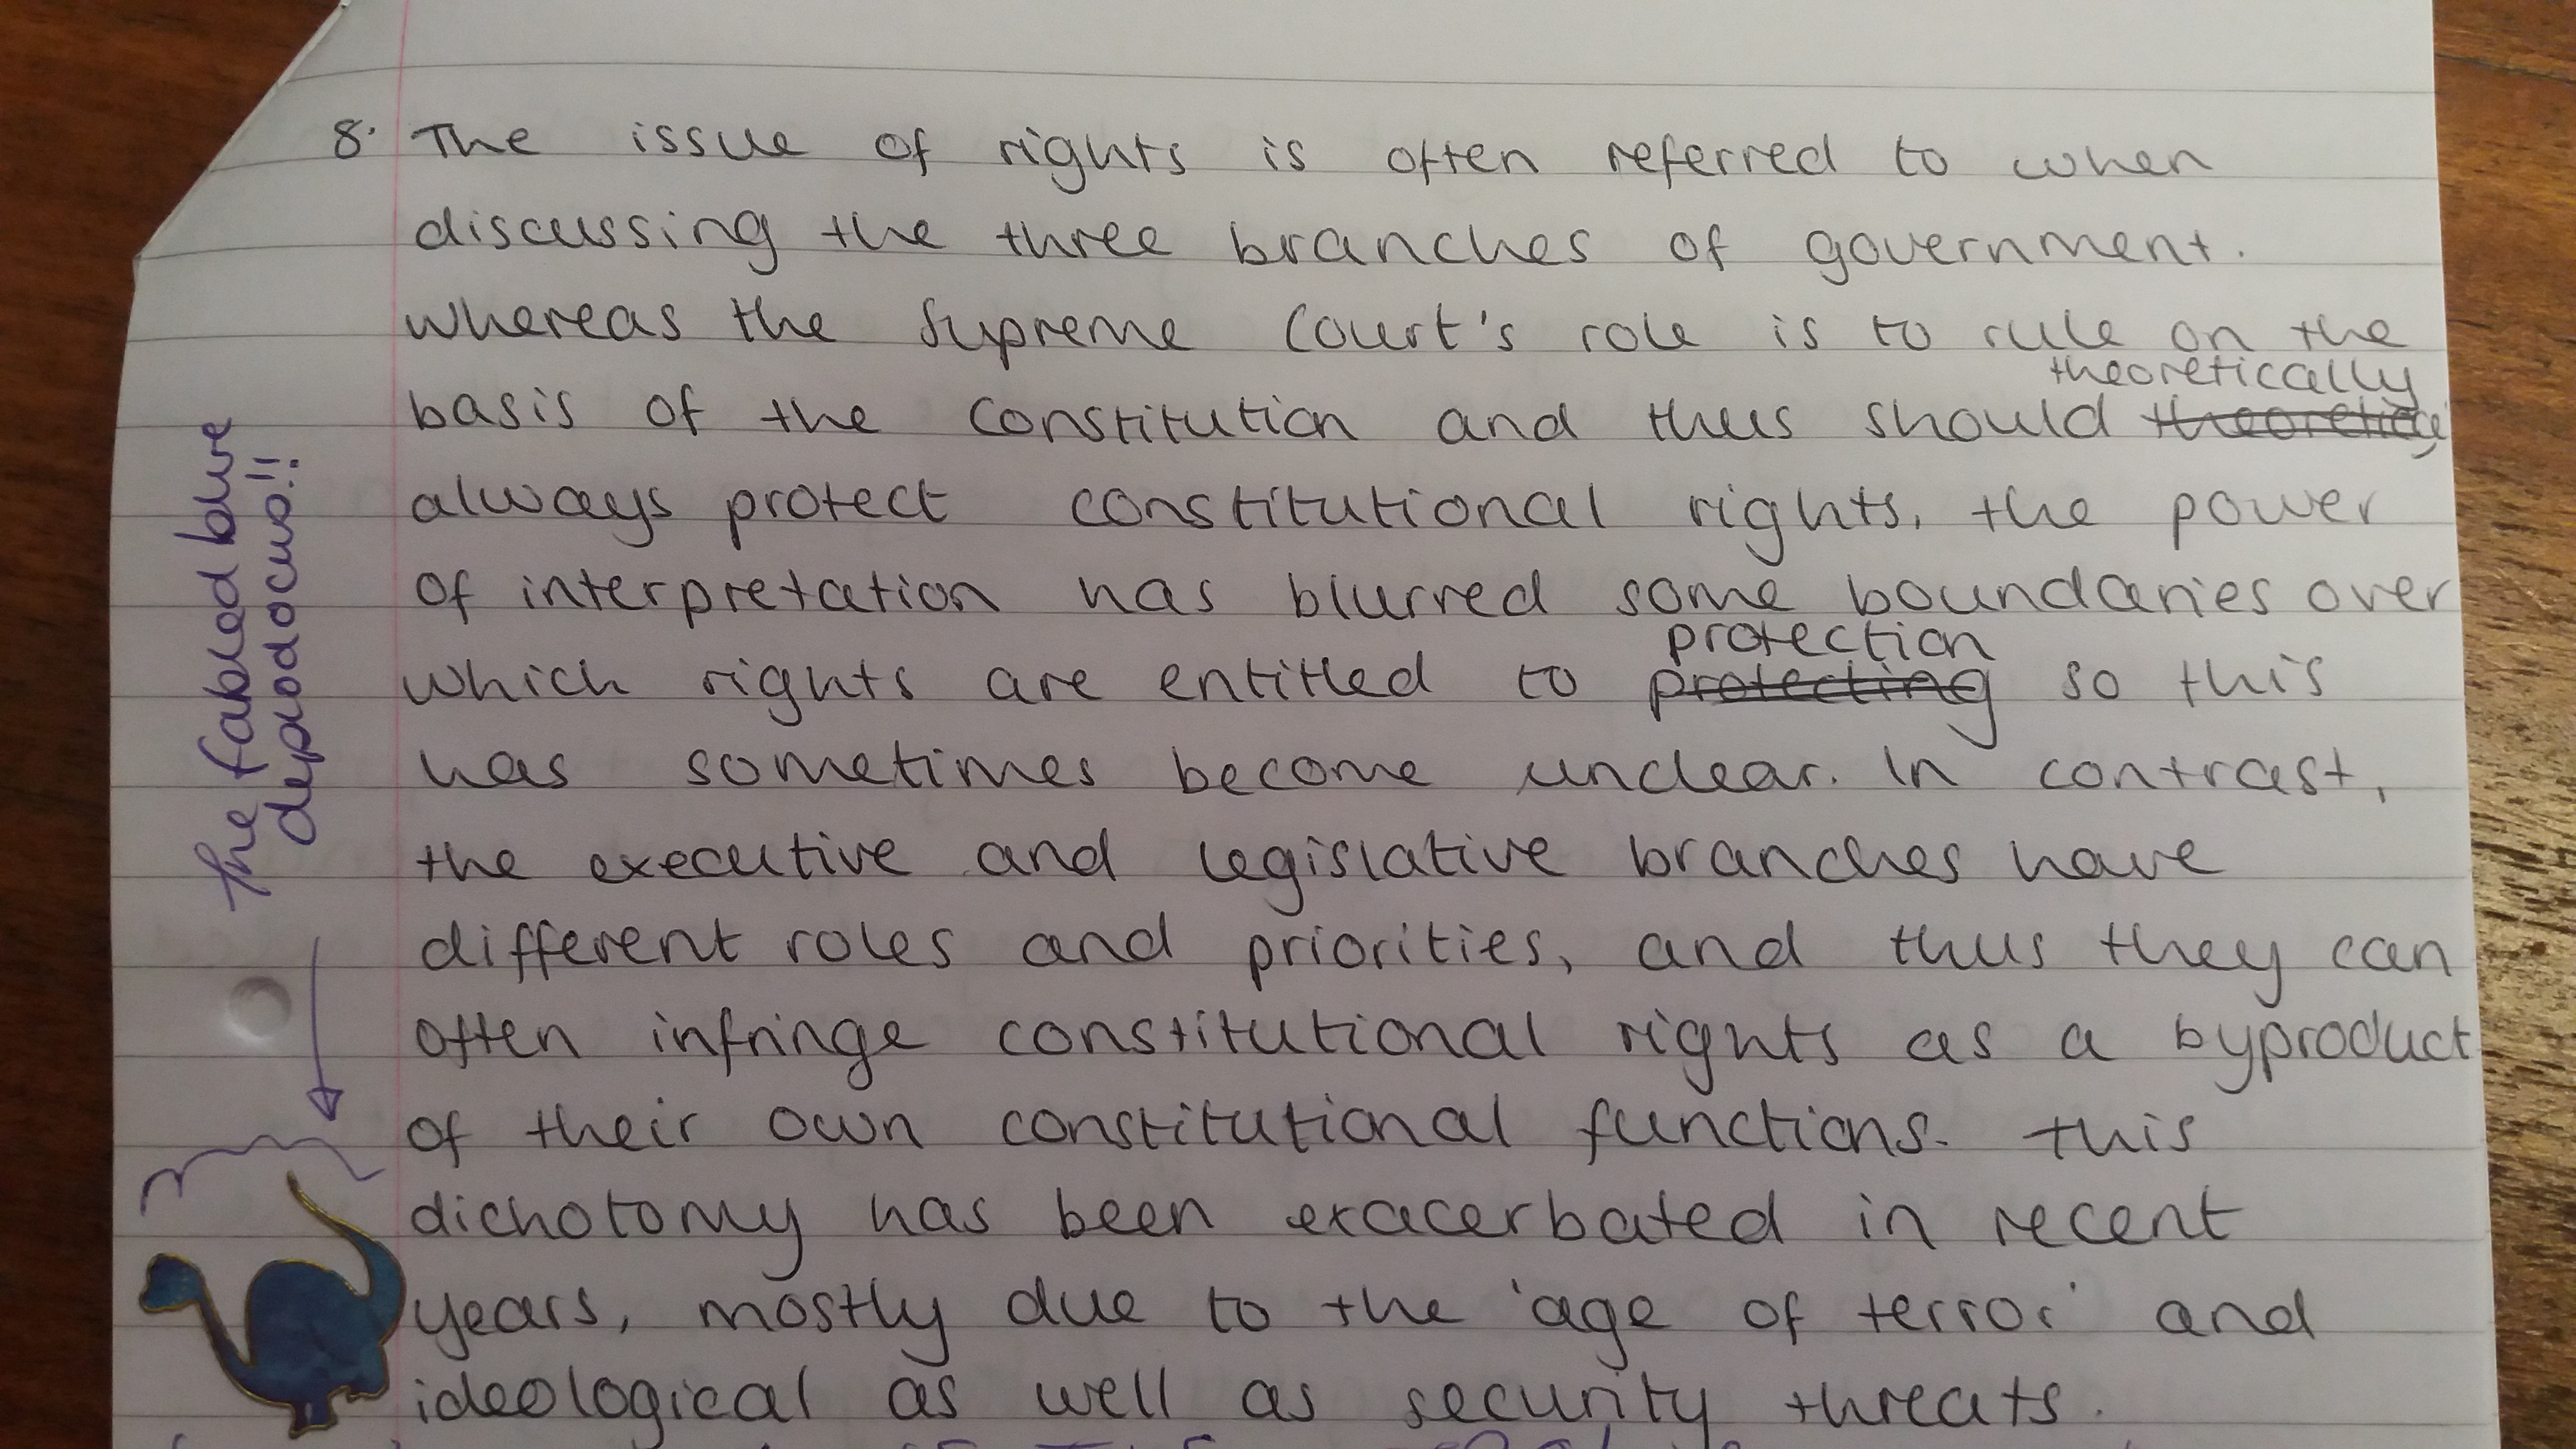 8. The issue of rights is often referred to when
discussing the three branches of government.
whereas the Supreme Court's role is to rule on the
theoretically
basis of the constitution and thus should theoretical
always protect constitutional rights, the power
of interpretation has blurred some boundaries over
protection
which rights are entitled to protecting so this
has sometimes become unclear. In contrast,
the executive and legislative branches have
different roles and priorities, and thus they can
often infringe constitutional rights as a byproduct
of their own constitutional functions. This
dichotomy has been exacerbated in recent
years, mostly due to the 'age of terror' and
ideological as well as security threats.
The fabled blue
deplodocus!!